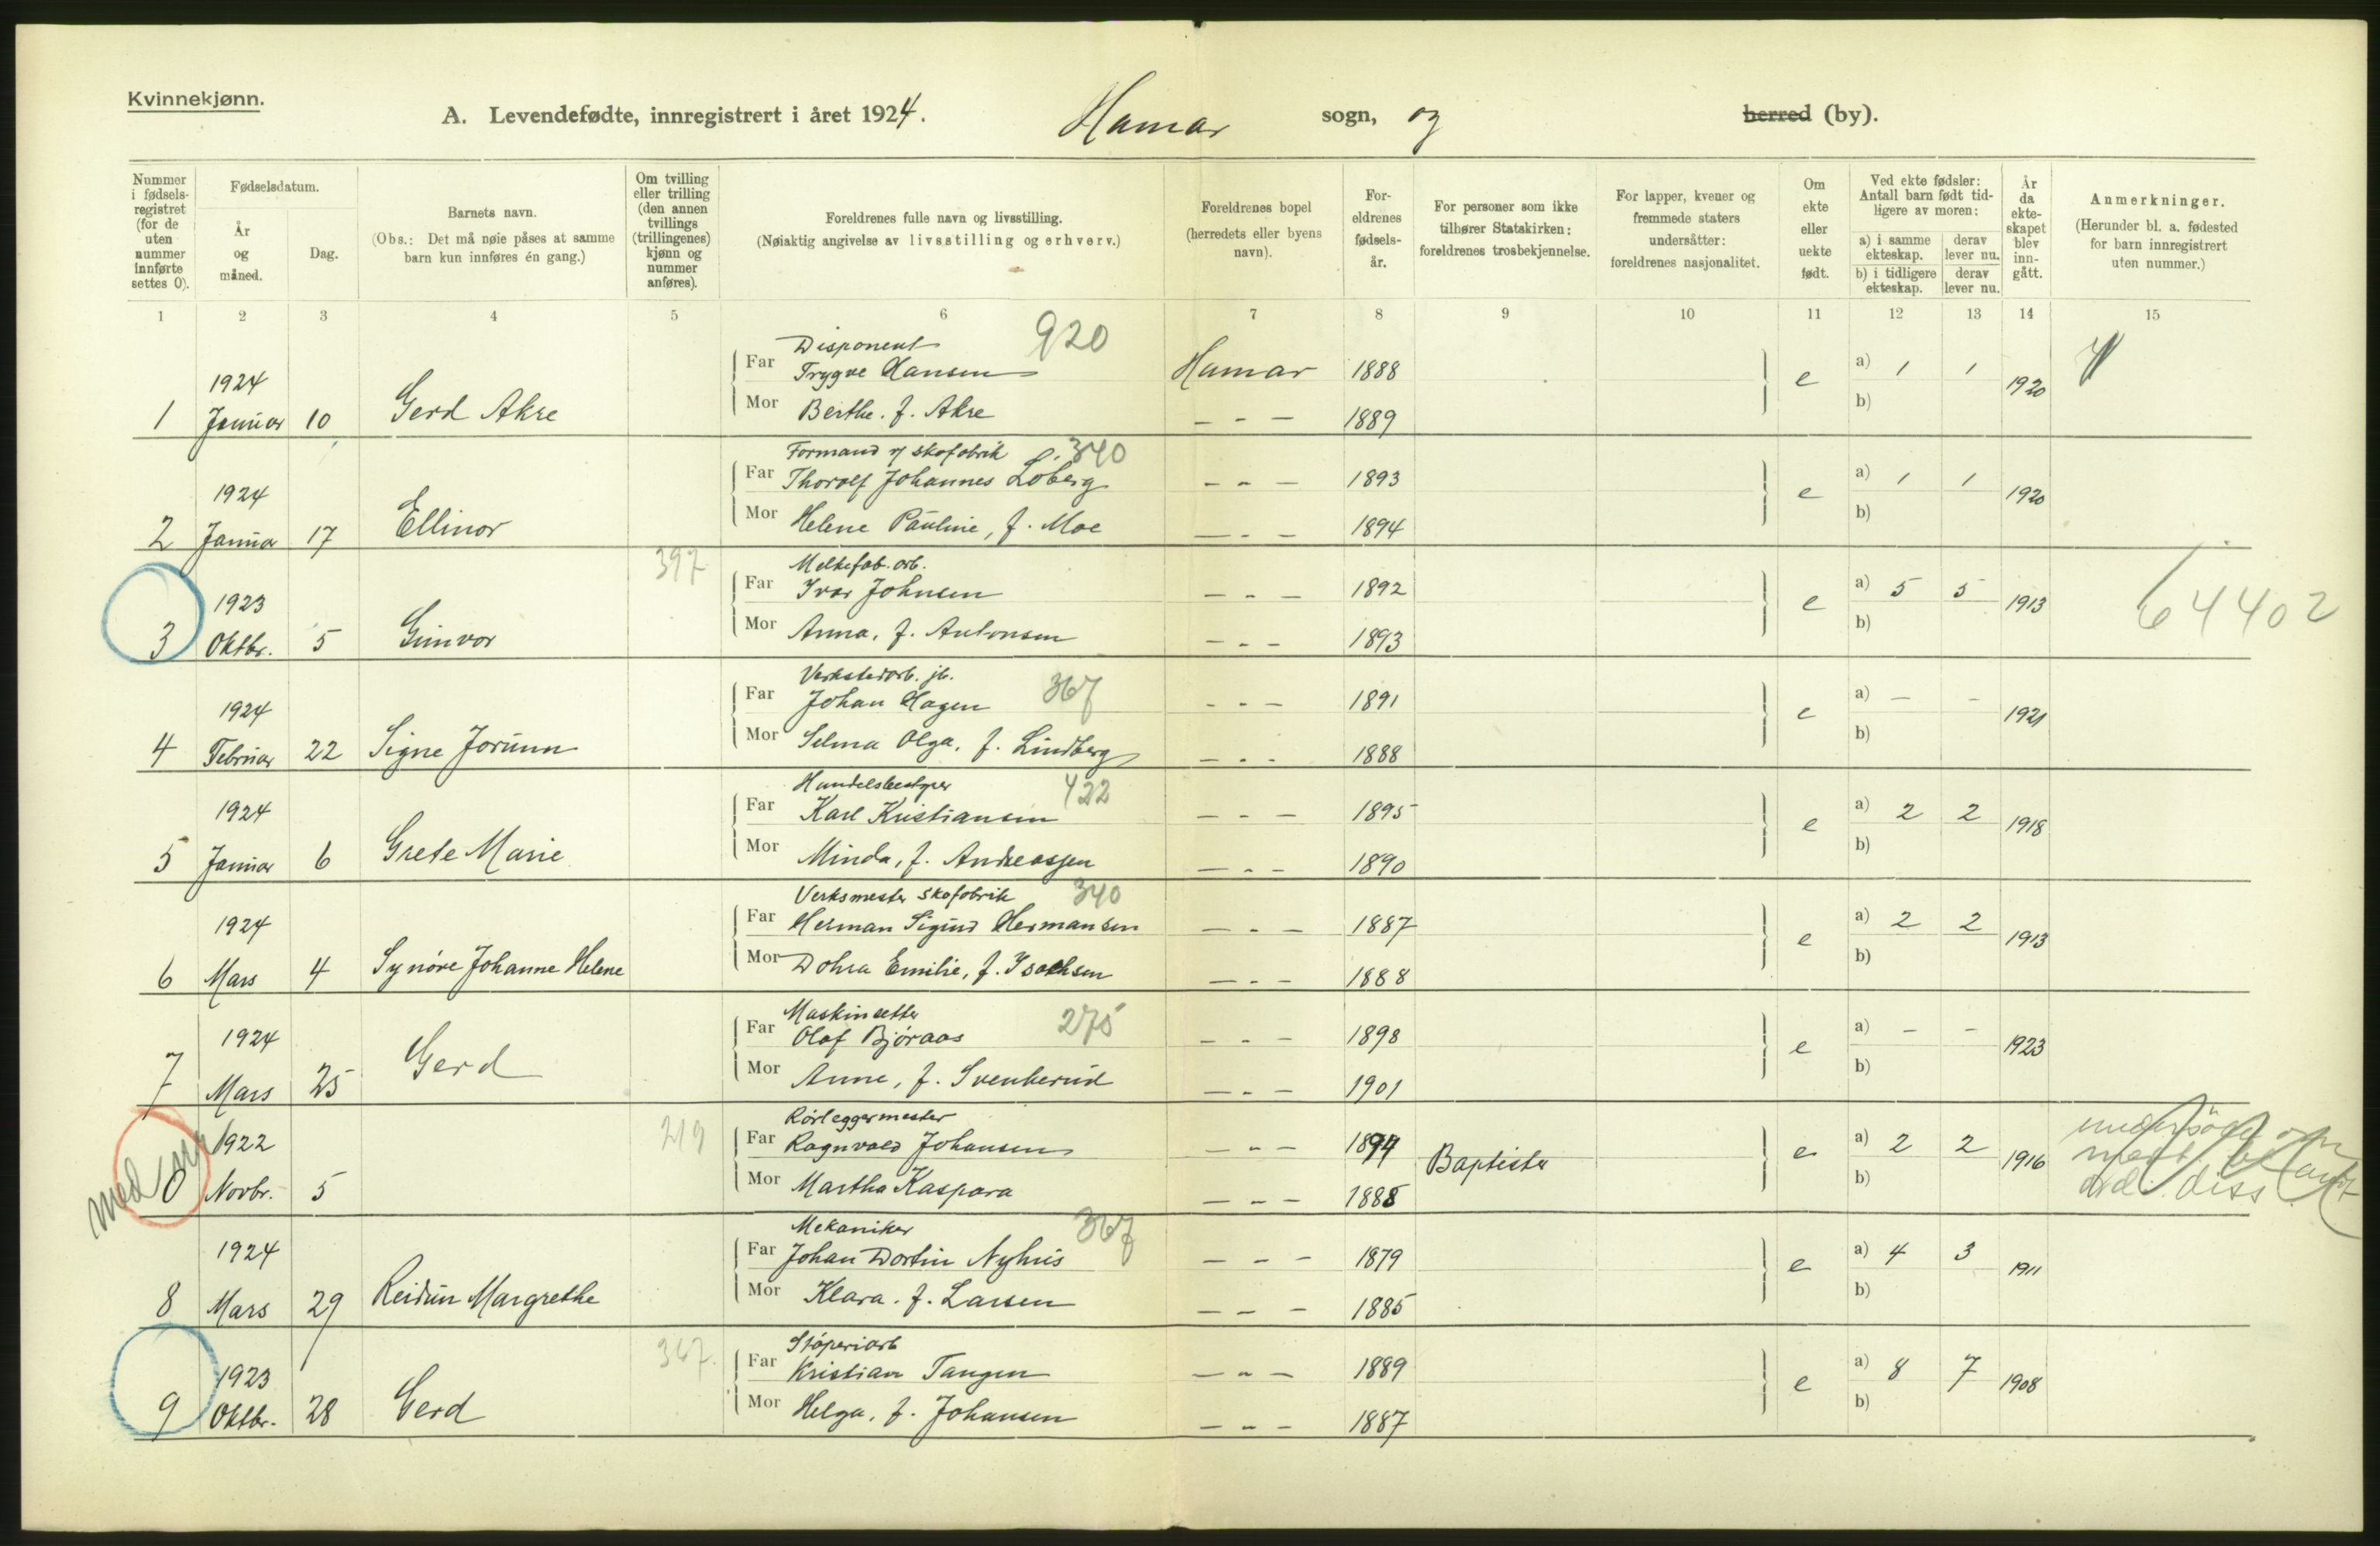 Kvinnekjønn.
A. Levendefødte, innregistrert i året 1924. Hamar sogn, og herred (by).
Nummer i fødsels-registret (for de uten nummer innførte settes 0).
Fødselsdatum.
År og måned.
Dag.
Barnets navn.
(Obs.: Det må nøie påses at samme barn kun innføres én gang.)
Om tvilling eller trilling (den annen tvillings (trillingenes) kjønn og nummer anføres).
Foreldrenes fulle navn og livsstilling.
(Nøiaktig angivelse av livsstilling og erhverv.)
Foreldrenes bopel (herredets eller byens navn).
For-eldrenes fødsels-år.
For personer som ikke tilhører Statskirken: foreldrenes trosbekjennelse.
For lapper, kvener og fremmede staters undersåtter: foreldrenes nasjonalitet.
Om ekte eller uekte født.
Ved ekte fødsler: Antall barn født tid-ligere av moren:
a) i samme ekteskap. derav lever nu.
b) i tidligere ekteskap. derav lever nu.
År da ekte-skapet blev inn-gått.
Anmerkninger.
(Herunder bl. a. fødested for barn innregistrert uten nummer.)
1 2 3 4 5 6 7 8 9 10 11 12 13 14 15
Disponent 920
1924 Far Trygve Hansen Hamar 1888 e a) 1 1 1920
1 Januar 10 Gerd Akre Mor Berthe. f. Akre — - — 1889 b)
Formand v/ skofabrik 340
1924 Far Thorolf Johannes Løberg — - — 1893 e a) 1 1 1920
2 Januar 17 Ellinor Mor Helene Pauline, f. Moe — - — 1894 b)
397 Melkefab. arb.
1923 Far Ivar Johnsen — - — 1892 e a) 5 5 1913 64402
3 Oktbr. 5 Gunvor Mor Anna, f. Antonsen — - — 1893 b)
Verkstedarb. jb. 367
1924 Far Johan Hagen — - — 1891 e a) — - 1921
4 Februar 22 Signe Jorunn Mor Selma Olga, f. Lindberg — - - 1888 b)
Handelsbestyrer 422
1924 Far Karl Kristiansen — - — 1895 e a) 2 2 1918
5 Januar 6 Grete Marie Mor Minda, f. Andreassen — - — 1890 b)
Verksmester skofabrik 340
1924 Far Herman Sigurd Hermansen — - — 1887 e a) 2 2 1913
6 Mars 4 Synöve Johanne Helene Mor Dohra Emilie, f. Isachsen — - — 1888 b)
Maskinsetter 275
1924 Far Olaf Björaas — - — 1898 e a) — — 1923
7 Mars 25 Gerd Mor Anne, f. Svenkerud — - — 1901 b)
219 Rörleggermester
1922 Far Ragnvald Johansen — - — 1894 Baptister e a) 2 2 1916
med 0 Novbr. 5 Mor Martha Kaspara — — — 1888 b) diss
Mekaniker 367
1924 Far Johan Dortin Nyhus — — — 1879 e a) 4 3 1911
8 Mars 29 Reidun Margrethe Mor Klara. f. Larsen — — — 1885 b)
367. Stöperiarb
1923 Far Kristian Tangen — - — 1889 e a) 8 7 1908
9 Oktbr. 28 Gerd Mor Helga, f. Johansen — - — 1887 b)